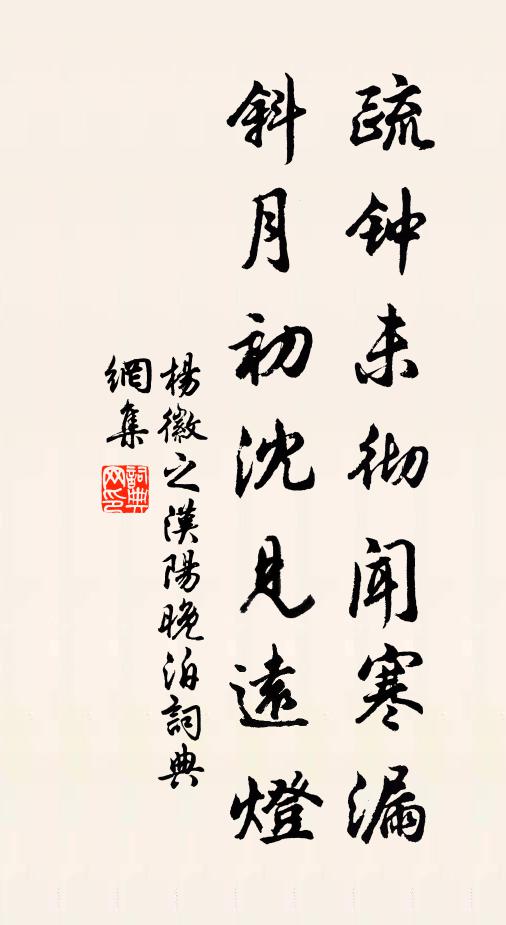 疏钟未彻闻寒漏
斜月初沈见遠燈
楊徽之漢陽晚泊詞典
網集
詞典網印